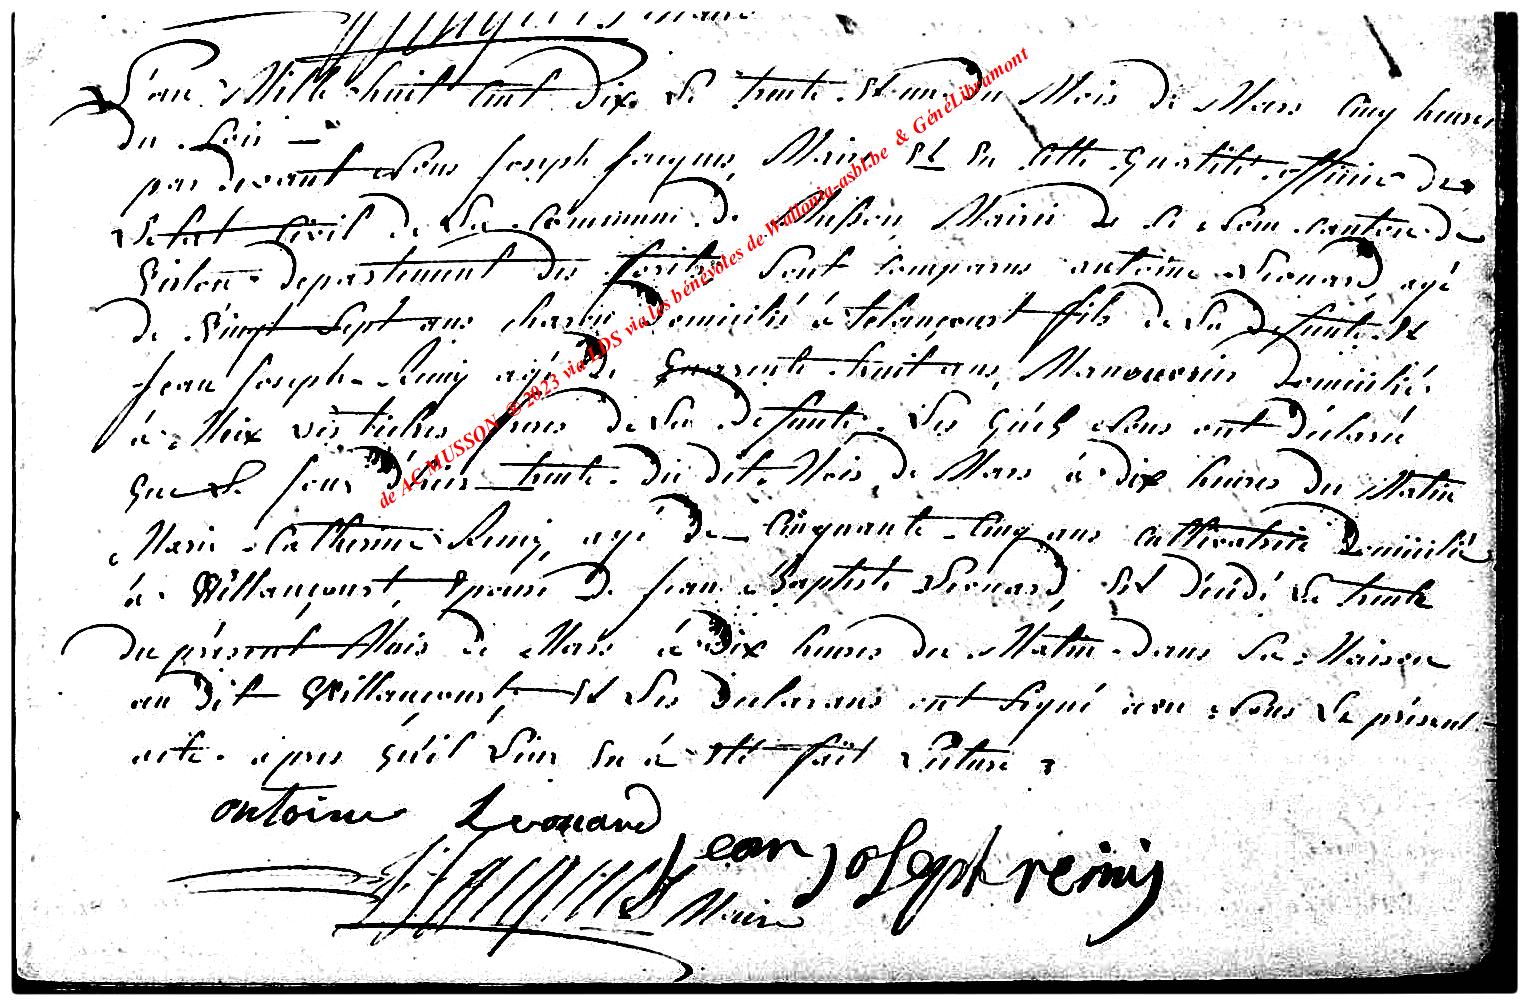 L'an Mille huit Cent dix Le trente et un du Mois de Mars Cinq heures
du Soir —
par devant Nous Joseph Jacques, Maire et en Cette Qualité officier de
L'etat Civil de La Commune de Musson Mairie de Ce Nom Canton de
Virton departement des forêts Sont Comparus antoine Leonard agé
de Vingt Sept ans charon Domicilié à telancourt fils de La defunte et
Jean Joseph Remy agé de Quarente huit ans, Manouvrier Domicilié
à Meix vis tiches frere de La defunte. Les Quels Nous ont déclaré
que Le Jour d'hier trente du dit Mois de Mars à dix heures du Matin
Marie Catherine Remy, agé de Cinquante Cinq ans Cultivatrice Domicilié
à Willancourt Epouse De Jean Baptiste Leonard, Est décédé Le trente
du présent Mois de Mars à Dix heures du Matin dans Sa Maison
au dit Willancourt, et Les Declarans ont Signé avec Nous Le présent
acte. apres qu'il Leur En à été fait Lecture
antoine Leonard
Jean joseph remy
Jacques Maire
de AC MUSSON © 2023 via LDS via les bénévoles de Wallonia-asbl.be & GénéLibramont